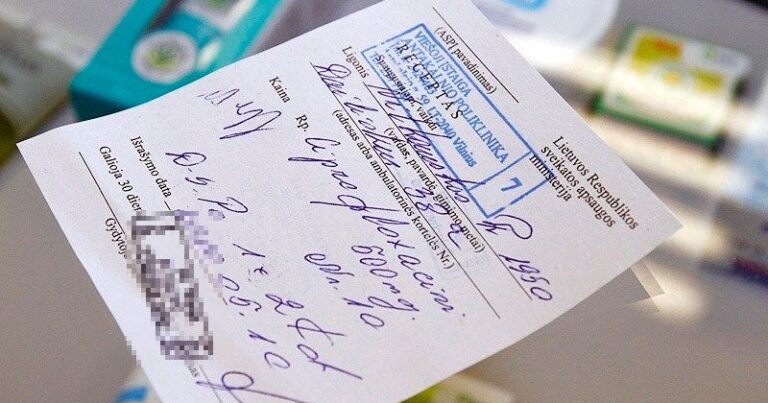 Lietuvos Respublikos
sveikatos apsaugos
ministerija
(ASPĮ pavadinimas)
VIEŠOJI ĮSTAIGA
ANTAKALNIO POLIKLINIKA
59 LT-2040 Vilnius
7
RECEPTAS
Suaugusiajam, Vaikui
Ligonis
1950
(vardas, pavardė, gimimo metai)
(adresas arba ambulatorinės kortelės Nr.)
Kaina Rp.
Ciprofloxacini
500 mg.
Nr. 10
D.S.P. 1 x 2 k d
Išrašymo data
05. 10
Galioja 30 dienų
Gydytoj